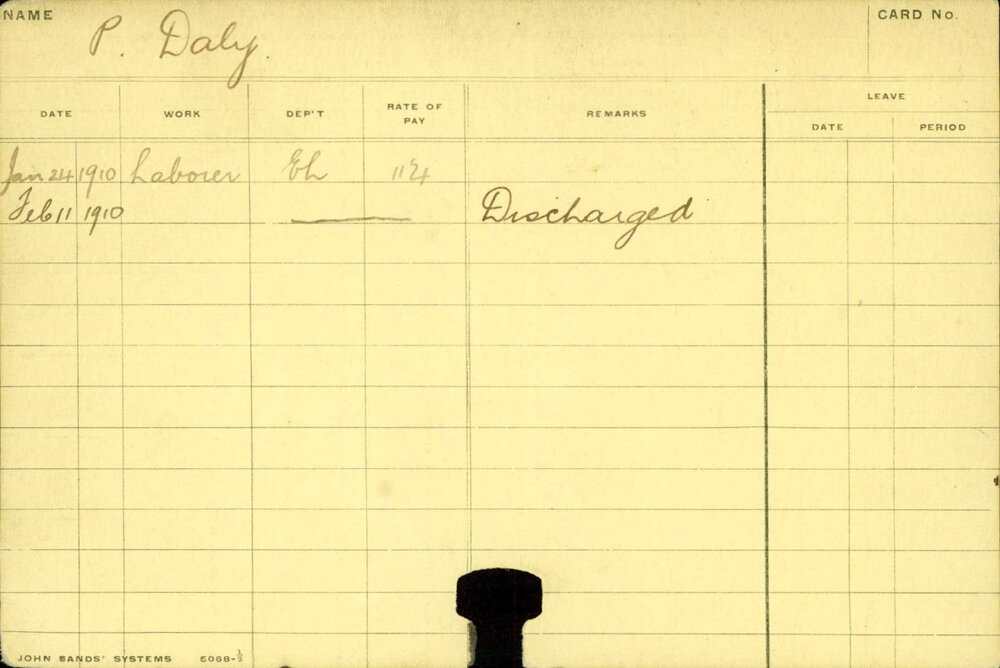 NAME P. Daly. CARD No.
LEAVE
DATE WORK DEP'T RATE OF PAY REMARKS DATE PERIOD
Jan 24 1910 Laborer Eh
Feb 11 1910 Discharged
JOHN SANDS' SYSTEMS 5068-